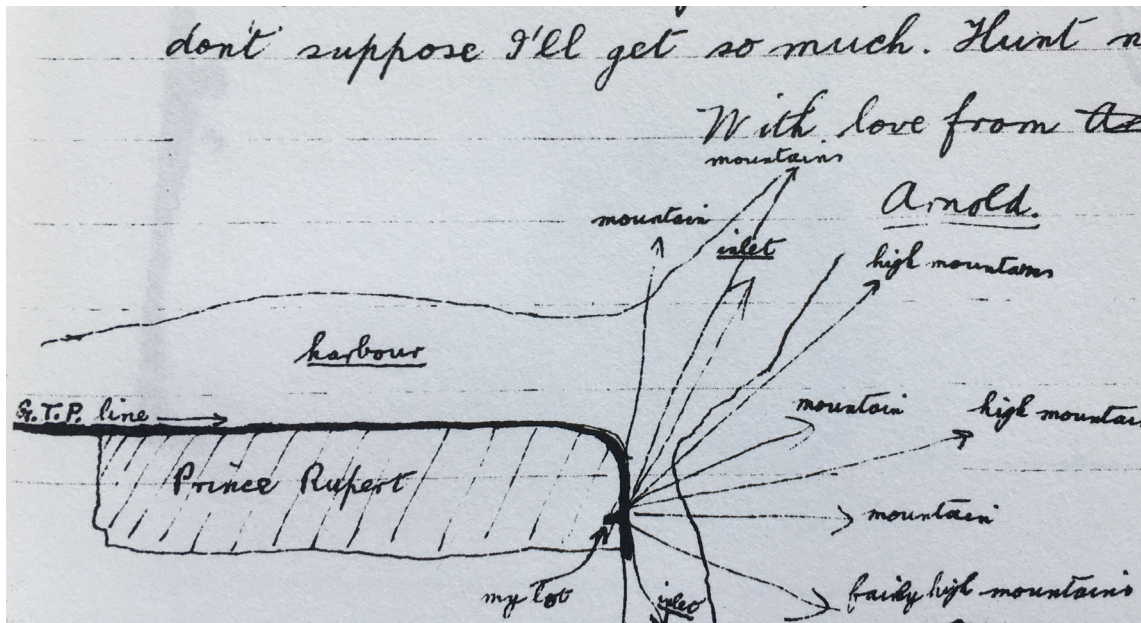 don't suppose I'll get so much. Hunt
With love from
mountains
Arnold.
mountain
inlet
high mountains
harbour
G.T.P. line
mountain
high mountain
Prince Rupert
mountain
my lot
inlet
fairly high mountains